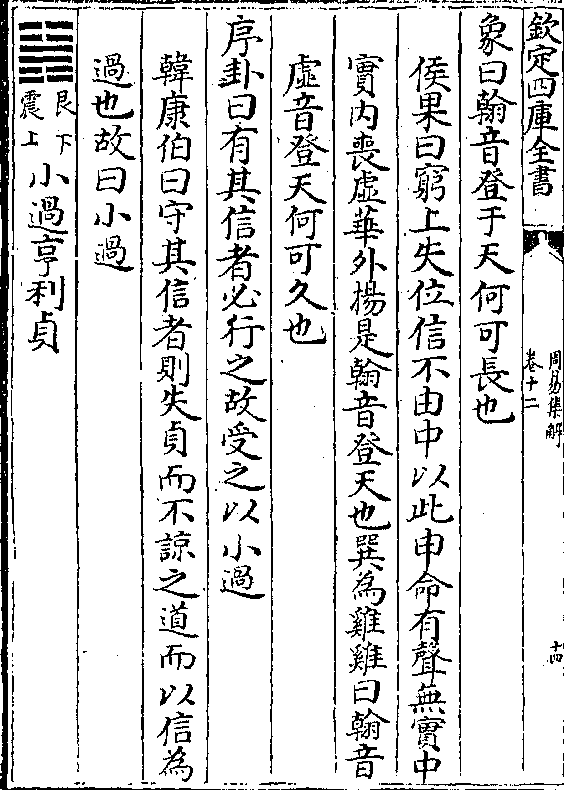 欽定四庫全書
周易集解
卷十二
十四
象曰翰音登于天何可長也
侯果曰窮上失位信不由中以此申命有聲無實中
實內喪虛華外揚是翰音登天也巽為雞雞曰翰音
虛音登天何可久也
序卦曰有其信者必行之故受之以小過
韓康伯曰守其信者則失貞而不諒之道而以信為
過也故曰小過
艮下
震上
小過亨利貞